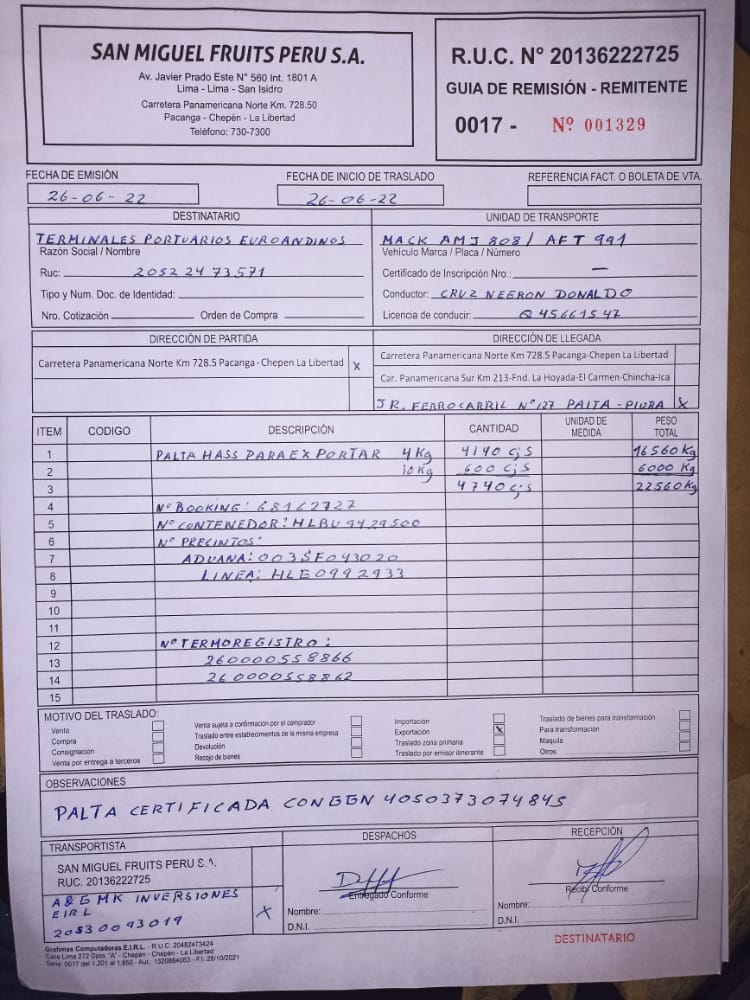 SAN MIGUEL FRUITS PERU S.A.
Av. Javier Prado Este N° 560 Int. 1801 A
Lima - Lima - San Isidro
Carretera Panamericana Norte Km. 728.50
Pacanga - Chepén - La Libertad
Teléfono: 730-7300
R.U.C. N° 20136222725
GUIA DE REMISIÓN - REMITENTE
0017 - Nº 001329
FECHA DE EMISIÓN
26-06-22
FECHA DE INICIO DE TRASLADO
26-06-22
REFERENCIA FACT. O BOLETA DE VTA.
DESTINATARIO
TERMINALES PORTUARIOS EUROANDINOS
Razón Social / Nombre
Ruc: 20522473571
Tipo y Num. Doc. de Identidad:
Nro. Cotización Orden de Compra
UNIDAD DE TRANSPORTE
MACK AMJ 808 / AFT 991
Vehículo Marca / Placa / Número
Certificado de Inscripción Nro.: —
Conductor: CRUZ NEGRON DONALDO
Licencia de conducir: Q45661542
DIRECCIÓN DE PARTIDA
Carretera Panamericana Norte Km 728.5 Pacanga - Chepen La Libertad X
DIRECCIÓN DE LLEGADA
Carretera Panamericana Norte Km 728.5 Pacanga-Chepen La Libertad
Car. Panamericana Sur Km 213-Fnd. La Hoyada-El Carmen-Chincha-Ica
JR. FERROCARRIL N°127 PAITA - PIURA X
ITEM CODIGO DESCRIPCIÓN CANTIDAD UNIDAD DE MEDIDA PESO TOTAL
1 PALTA HASS PARA EXPORTAR 4Kg 4140 cjs 16560 Kg
2 10Kg 600 cjs 6000 Kg
3 4740 cjs 22560 Kg
4 N° BOOKING: 68162727
5 N° CONTENEDOR: HLBU 9429500
6 N° PRECINTOS:
7 ADUANA: 003SE043020
8 LINEA: HLG0992933
9
10
11
12 N° TERMOREGISTRO:
13 260000558866
14 260000558862
15
MOTIVO DEL TRASLADO:
Venta
Compra
Consignación
Venta por entrega a terceros
Venta sujeta a confirmación por el comprador
Traslado entre establecimientos de la misma empresa
Devolución
Recojo de bienes
Importación
Exportación X
Traslado zona primaria
Traslado por emisor itinerante
Traslado de bienes para transformación
Para transformación
Maquila
Otros
OBSERVACIONES
PALTA CERTIFICADA CON GGN 4050373074845
TRANSPORTISTA
SAN MIGUEL FRUITS PERU S.A.
RUC. 20136222725
A & G MK INVERSIONES
EIRL X
20530093019
DESPACHOS
Entregado Conforme
Nombre:
D.N.I.
RECEPCIÓN
Recibí Conforme
Nombre:
D.N.I.
Grafimas Computadoras E.I.R.L. - R.U.C. 20482473424
Calle Lima 272 Dpto. "A" - Chepén - Chepén - La Libertad
Serie: 0017 del 1,201 al 1,650 - Aut.: 1320864063 - F.I. 26/10/2021
DESTINATARIO